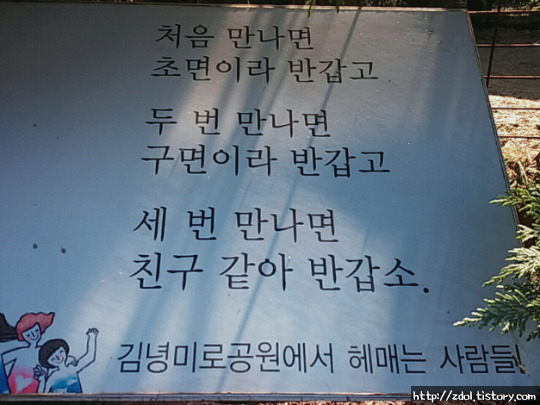 처음 만나면
초면이라 반갑고
두 번 만나면
구면이라 반갑고
세 번 만나면
친구 같아 반갑소.
김녕미로공원에서 헤매는 사람들!
http://zdol.tistory.com